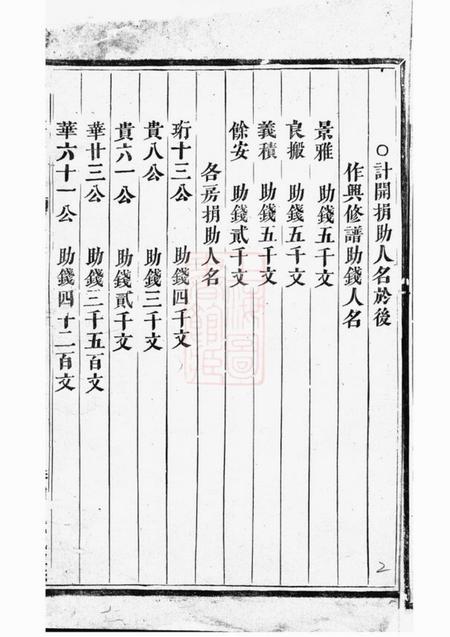 ○計開捐助人名於後
作興修譜助錢人名
景雅 助錢五千文
良搬 助錢五千文
義積 助錢五千文
餘安 助錢貳千文
各房捐助人名
珩十三公 助錢四千文
貴八公 助錢三千文
貴六一公 助錢貳千文
華廿三公 助錢三千五百文
華六十一公 助錢四千二百文
2